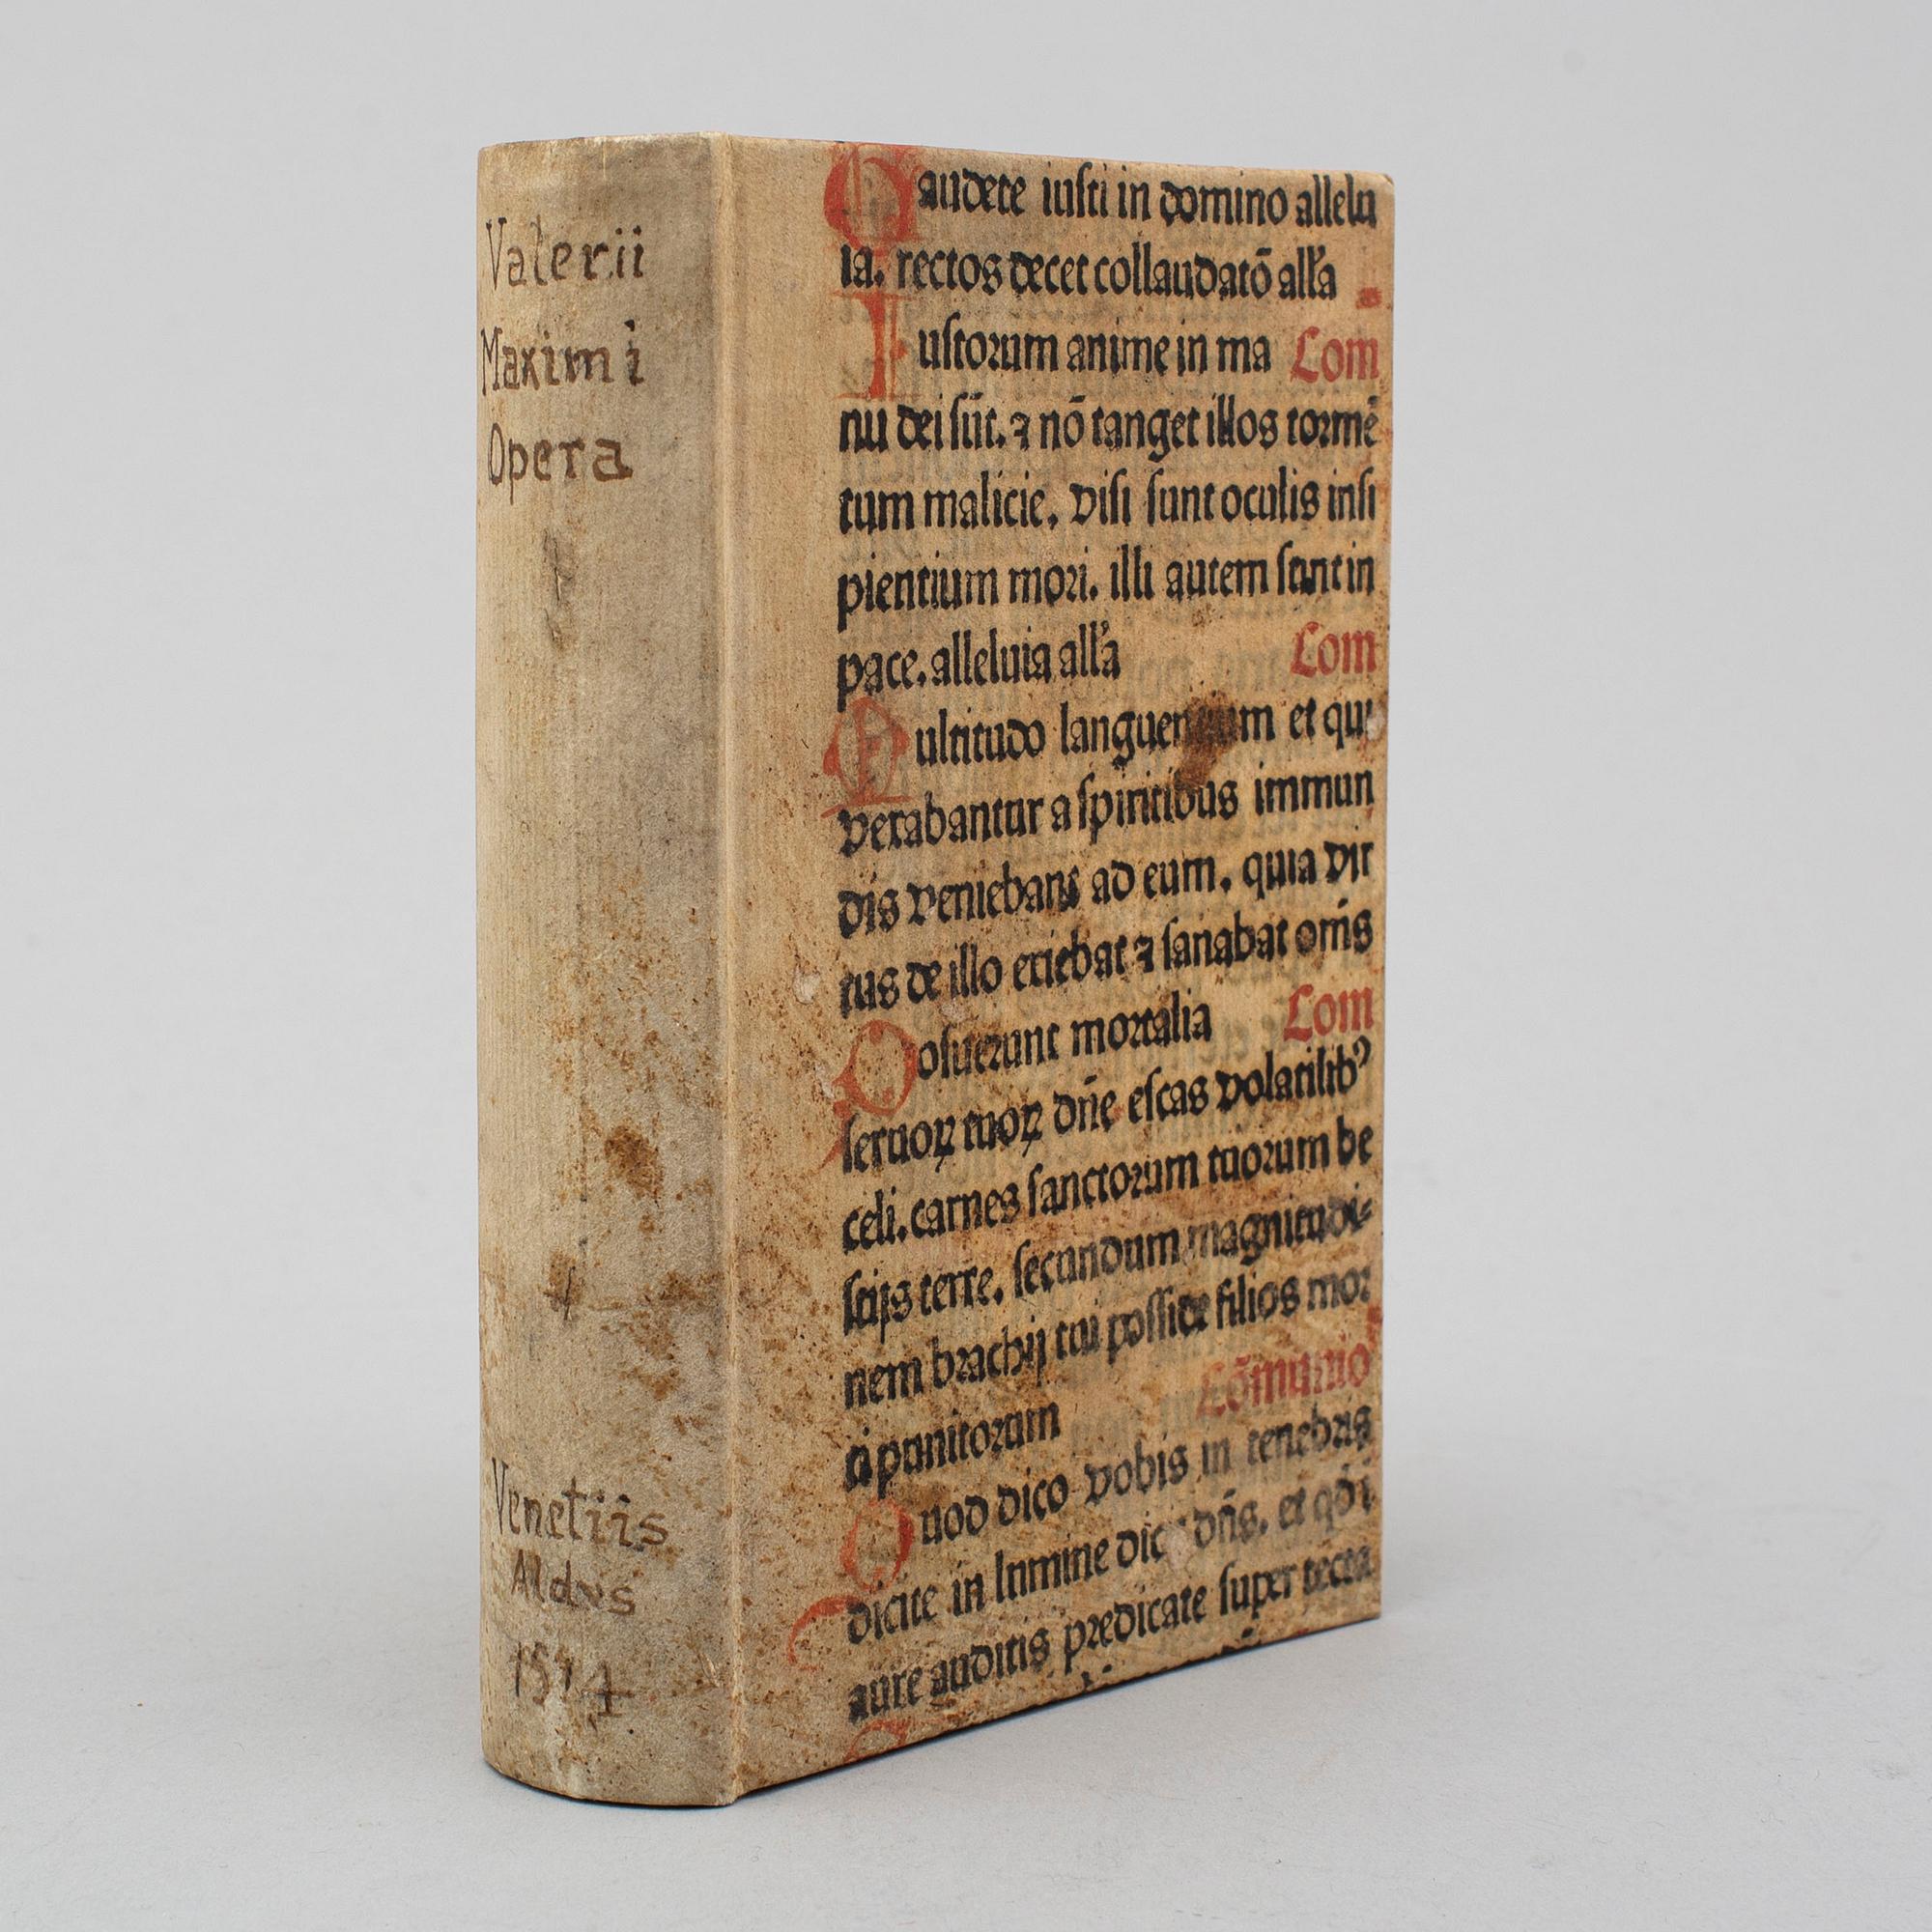 Valerii
Maximi
Opera
Venetiis
Aldvs
1514
Gaudete iusti in domino allelu
ia. rectos decet collaudatō all'a
Iustorum anime in ma Com
nu dei sūt. ⁊ nō tanget illos tormē
tum malicie. visi sunt oculis insi
pientium mori. illi autem sunt in
pace. alleluia all'a Com
Multitudo languentium et qui
vexabantur a spiritibus immun
dis veniebant ad eum. quia vir
tus de illo exiebat ⁊ sanabat om̄s
Posuerunt mortalia Com
seruoꝝ tuoꝝ dn̄e escas volatilibꝰ
celi. carnes sanctorum tuorum be
stijs terre. secundum magnitudi-
nem brachij tui posside filios mor
ti punitorum Cōmunio
Quod dico vobis in tenebris
dicite in lumine dicit dn̄s. et qd̄ ī
aure auditis predicate super tecta